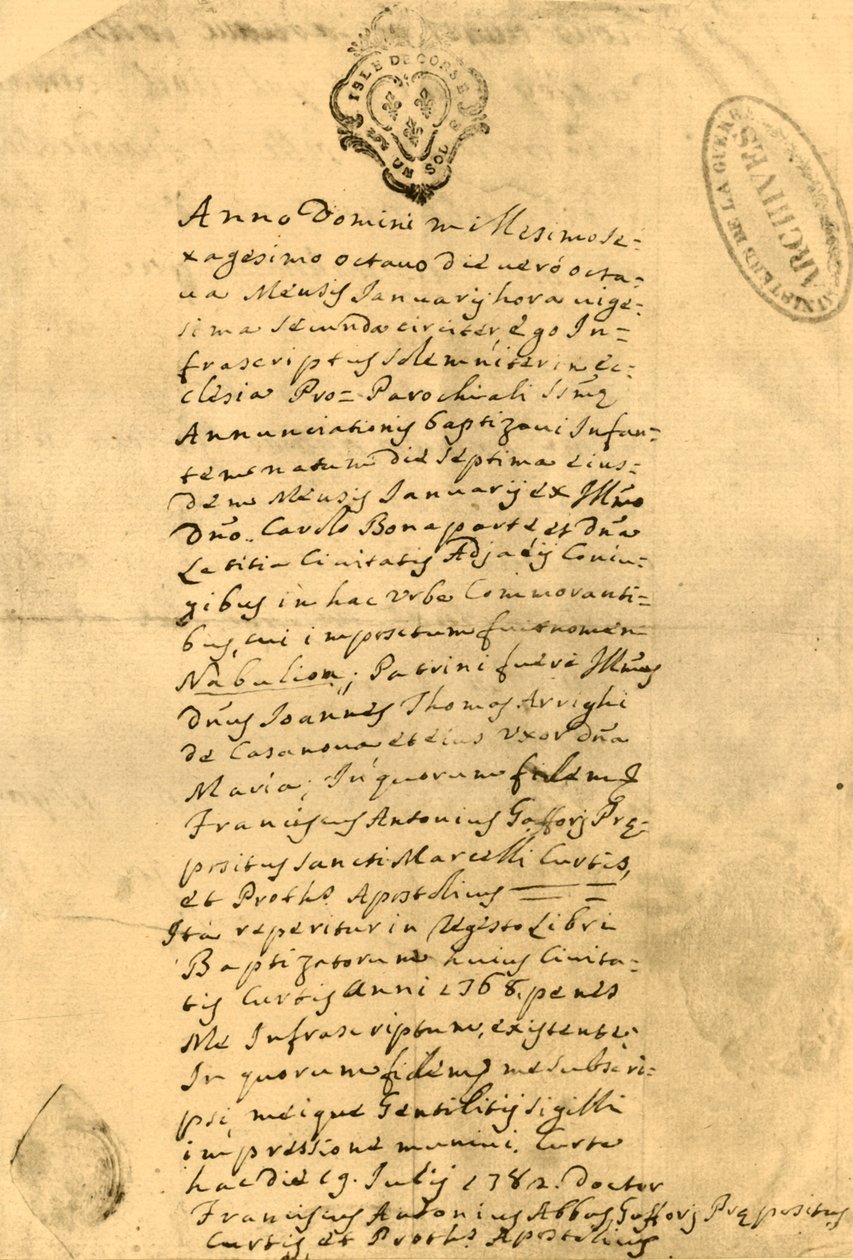 ISLE DE CORSE
UN SOL
MINISTERE DE LA GUERRE
ARCHIVES
Anno Domini millesimo se=
xagesimo octavo die verò octa=
va Mensis Januarij hora vige=
sima secunda circiter, ego In=
frascriptus solemniter in ec=
clesia Pro= Parochiali SSmæ
Annunciationis baptizavi Infan=
tem natum die septima eius=
dem Mensis Januarij ex Illmo
Dño. Carolo Bonaparte, et Dña
Letitia Civitatis Adjacij Coniu=
gibus in hac Vrbe Commoranti=
bus, cui impositum fuit nomen
Nabulion; Patrini fuere Illmus
Dñus Ioannes Thomas Arrighi
de Casanova et eius Vxor Dña
Maria; In quorum fidem
Franciscus Antonius Gafforj Præ=
positus Sancti Marcelli Curtis,
et Proths. Apostolicus
Ita reperitur in Regesto Libri
Baptizatorum huius Civita=
tis Curtis Anni 1768. penes
Me Infrascriptum, existente;
In quorum fidem me subscri=
psi, meique Gentilitij sigilli
impressione munivi. Curte
hac die 19. Julij 1782. Doctor
Franciscus Antonius Abbas Gafforj Præpositus
Curtis, et Proths. Apostolicus